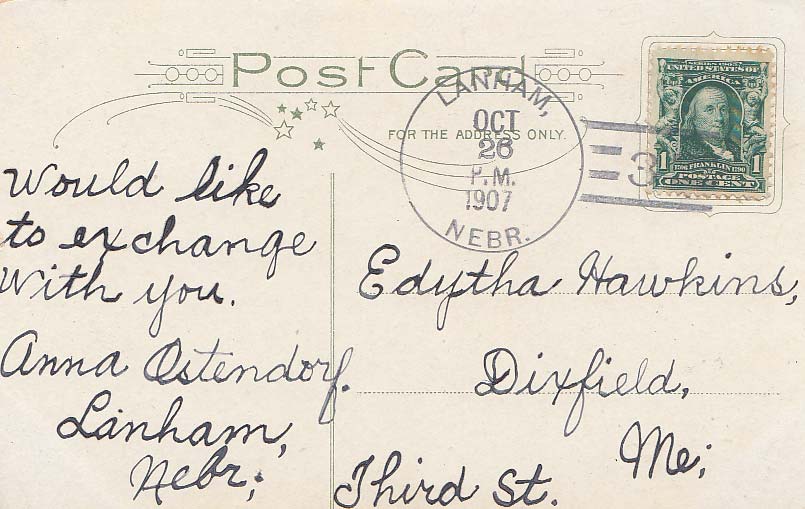 Post Card
FOR THE ADDRESS ONLY.
LANHAM,
OCT
26
P.M.
1907
NEBR.
3
SERIES 1902
UNITED STATES OF
AMERICA
1 1
1706 FRANKLIN 1790
POSTAGE
ONE CENT
Would like
to exchange
With you.
Anna Ostendorf.
Lanham,
Nebr;
Edytha Hawkins,
Dixfield,
Me;
Third St.